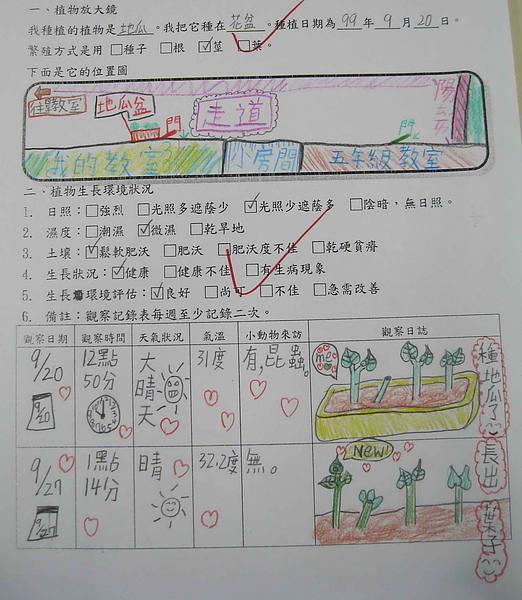 一、植物放大鏡
我種植的植物是地瓜。我把它種在花盆。種植日期為99年9月20日。
繁殖方式是用 □種子 □根 ☑莖 □葉。
下面是它的位置圖
往 教室
地瓜盆
門
走道
門
我的教室
小房間
五年級教室
二、植物生長環境狀況
1. 日照：□強烈 □光照多遮蔭少 ☑光照少遮蔭多 □陰暗，無日照。
2. 濕度：□潮濕 ☑微濕 □乾旱地
3. 土壤：☑鬆軟肥沃 □肥沃 □肥沃度不佳 □乾硬貧瘠
4. 生長狀況：☑健康 □健康不佳 □有生病現象
5. 生長環境評估：☑良好 □尚可 □不佳 □急需改善
6. 備註：觀察記錄表每週至少記錄二次。
觀察日期 觀察時間 天氣狀況 氣溫 小動物來訪 觀察日誌
9/20 12點50分 大晴天 31度 有,昆蟲。 me 種地瓜了
9/20
9/27 1點14分 晴 32.2度 無。 New! 長出葉子
9/27